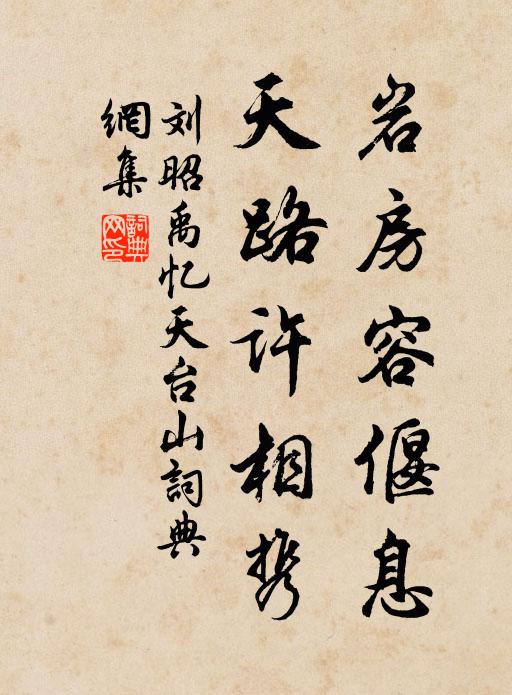 岩房容偃息
天路许相携
刘昭禹忆天台山詞典
網集
詞典網印